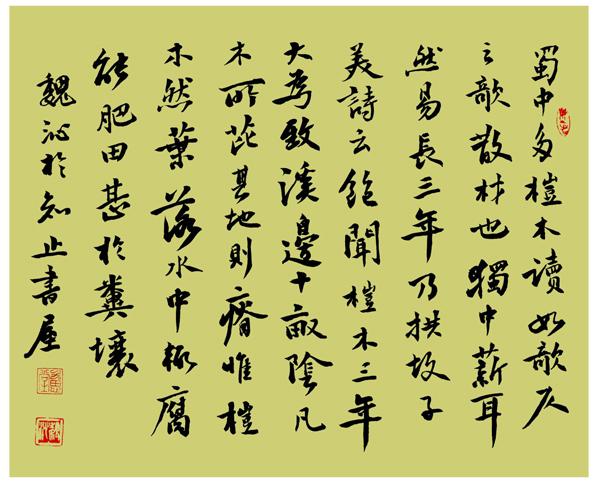 蜀中多榿木讀如欹仄
之欹散材也獨中薪耳
然易長三年乃拱故子
美詩云飽聞榿木三年
大為致溪邊十畝陰凡
木所芘其地則瘠惟榿
不然葉落水中輒腐
能肥田甚於糞壤
魏於知止書屋